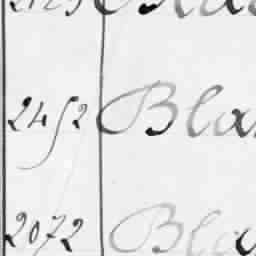 2452 Bla
2072 Bla